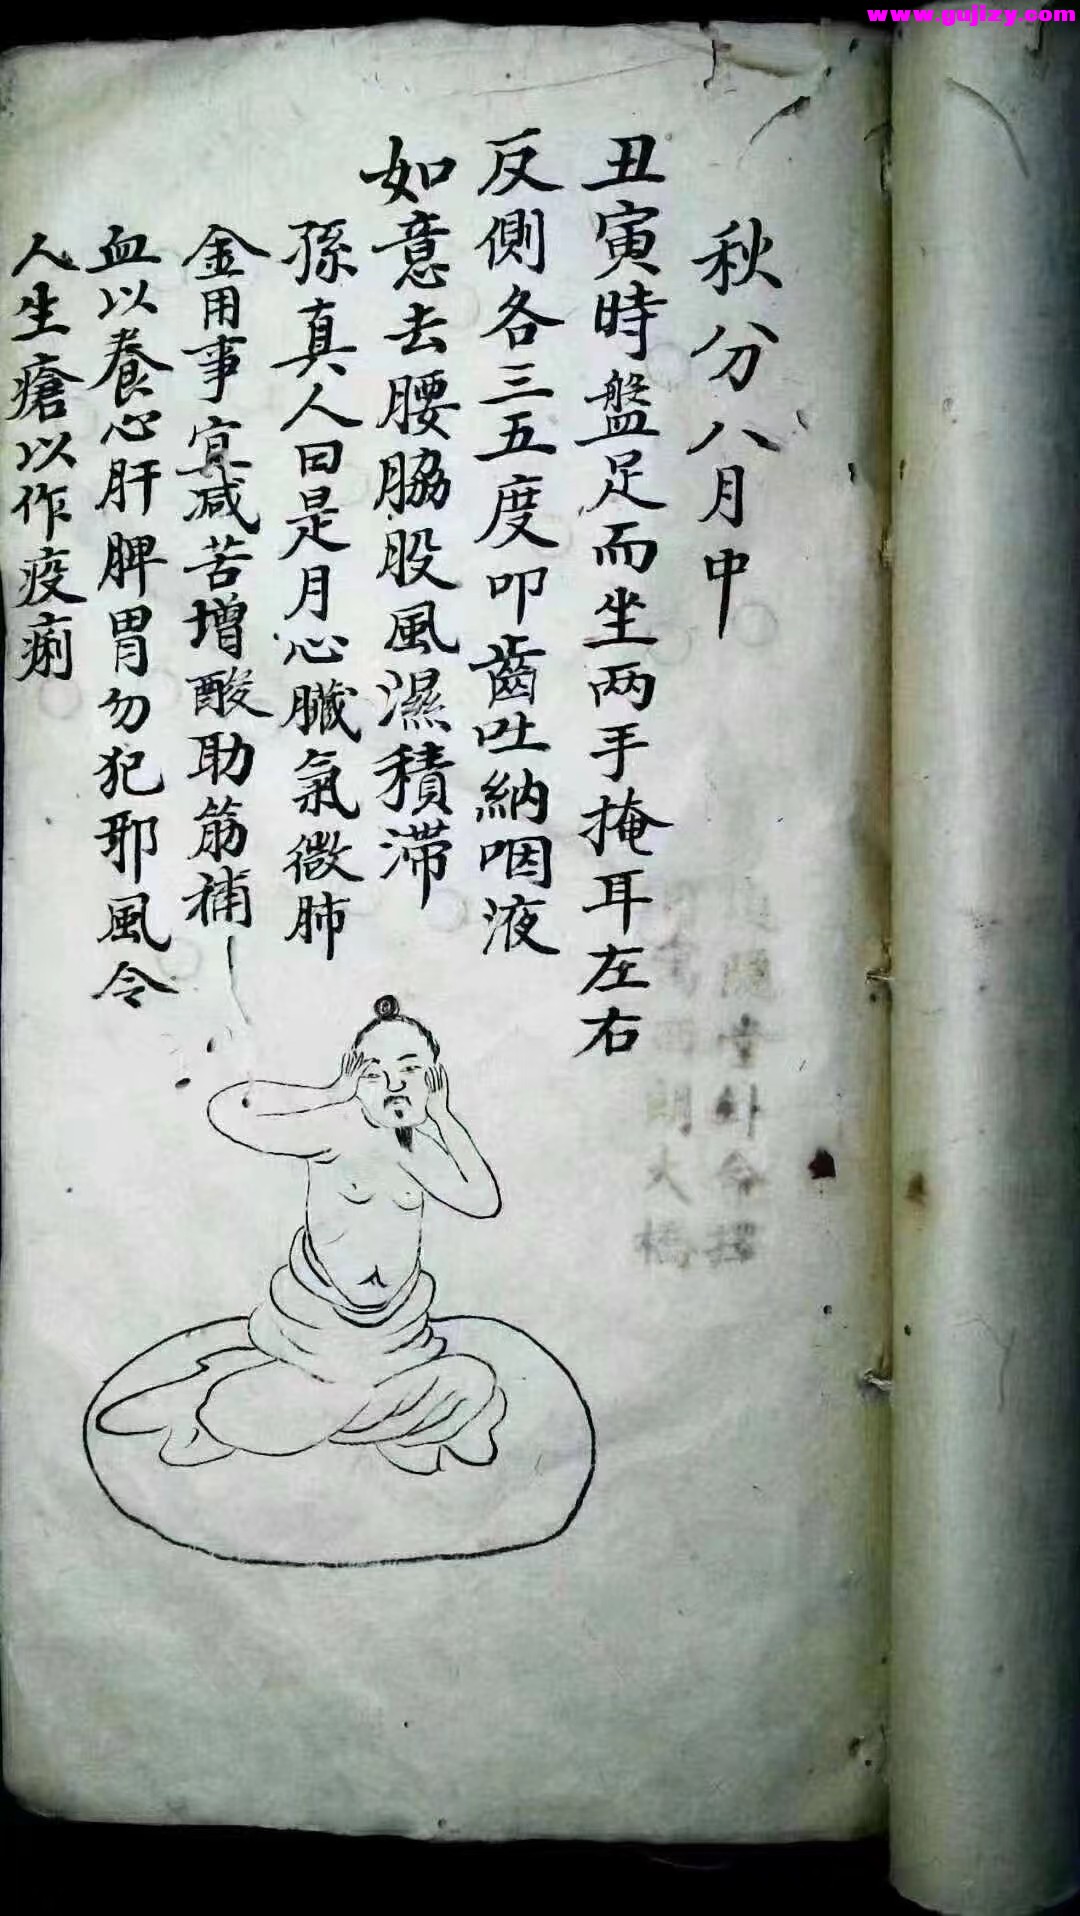 www.gujizy.com
秋分八月中
丑寅時盤足而坐两手掩耳左右
反側各三五度叩齒吐納咽液
如意去腰脇股風濕積滞
孫真人曰是月心臓氣微肺
金用事宜减苦增酸助筋補
血以養心肝脾胃勿犯耶風令
人生瘡以作疫痢